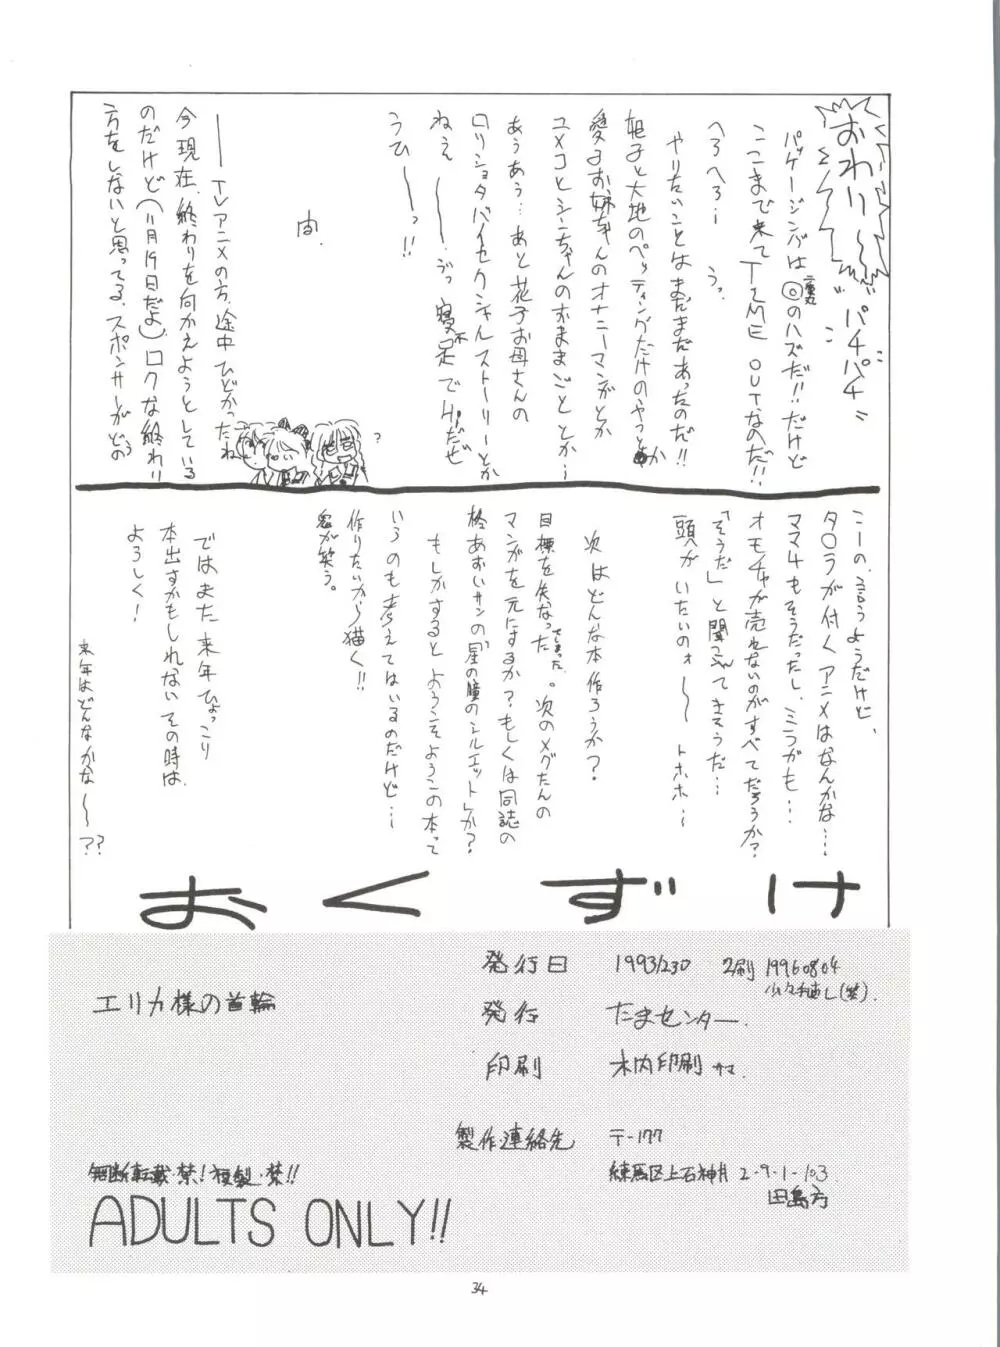 おわりー
パチパチ
パッケージングは◎のハズだ!!だけど
二重丸
ここまで来てTIME OUTなのだ!!
へろへろ…　うっ
やりたいことはまだまだあったのだ!!
姫子と大地のペッティングだけのやつとか
愛子お姉ちゃんのオナニーマンガとか
ユメコとシーちゃんのおままごととか…
あぅあぅ…あと花子お母さんの
ロリショタバイセクシャルストーリーとか
ねぇ〜〜　寝不足でHiだぜ
うひ〜〜っ!!
間.
――TVアニメの方、途中ひどかったね
今現在、終わりを向かえようとしている
のだけど(11月19日だよ)、ロクな終わり
方をしないと思ってる、スポンサーがどう
?
こーの、言うようだけど、
タ○ラが付くアニメはなんかな…
ママ4もそうだったし、ミラがも…
オモチャが売れないのがすべてだろうか?
「そうだ」と聞こえてきそうだ…
頭がいたいのォ〜〜トホホ…
次はどんな本作ろうか?
目標を失なってしまった。次のメグたんの
マンガを元にするか?もしくは同誌の
柊あおいサンの「星の瞳のシルエット」か?
もしかするとようこそようこの本って
いうのも考えてはいるのだけど…
作りたいから描く!!
鬼が笑う。
ではまた来年ひょっこり
本出すかもしれないその時は
よろしく!
来年はどんなかな〜〜??
おくずけ
エリカ様の首輪
発行日　1993/230　2刷 19960804
少々手直し(笑).
発行　たまセンター.
印刷　木内印刷 サマ.
製作・連絡先　〒-177
練馬区上石神井 2-9-1-103
田島方
無断転載・禁!複製・禁!!
ADULTS ONLY!!
34